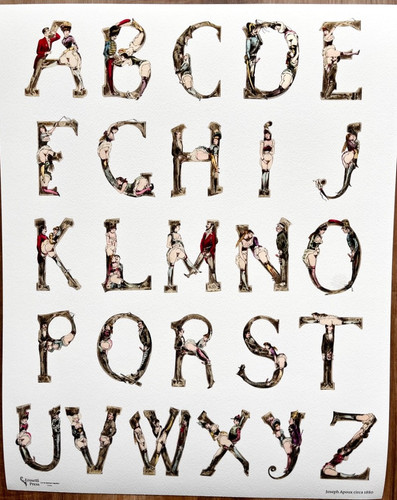 A B C D E
F G H I J
K L M N O
P Q R S T
U V W X Y Z
Press
Joseph Apoux circa 1880